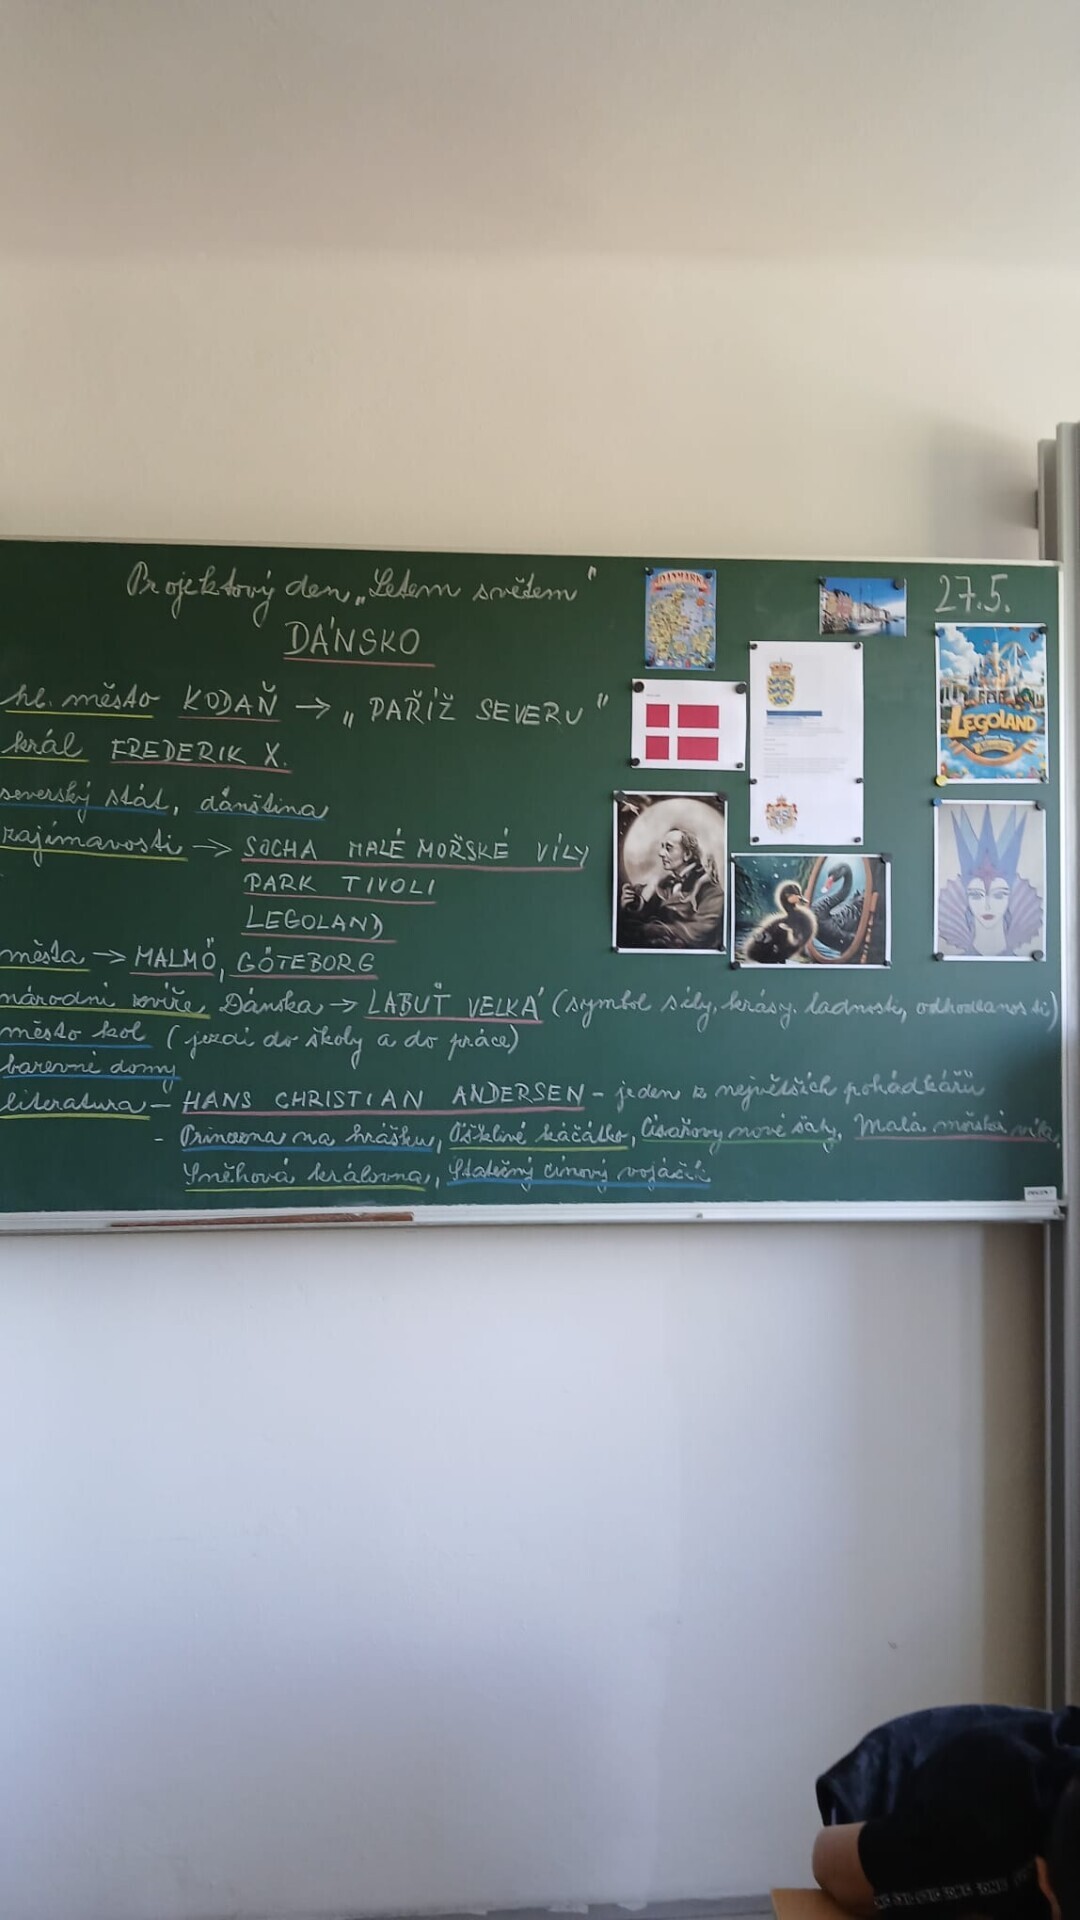 Projektový den „Letem světem"
27.5.
DÁNSKO
hl. město KODAŇ → „PAŘÍŽ SEVERU"
král FREDERIK X.
severský stát, dánština
zajímavosti → SOCHA MALÉ MOŘSKÉ VÍLY
PARK TIVOLI
LEGOLAND
města → MALMÖ, GÖTEBORG
národní zvíře Dánska → LABUŤ VELKÁ (symbol síly, krásy, ladnosti, odhodlanosti)
město kol (jezdí do školy a do práce)
barevné domy
literatura – HANS CHRISTIAN ANDERSEN – jeden z největších pohádkářů
- Princezna na hrášku, Ošklivé káčátko, Císařovy nové šaty, Malá mořská víla,
Sněhová královna, Statečný cínový vojáček
DANMARK
LEGOLAND